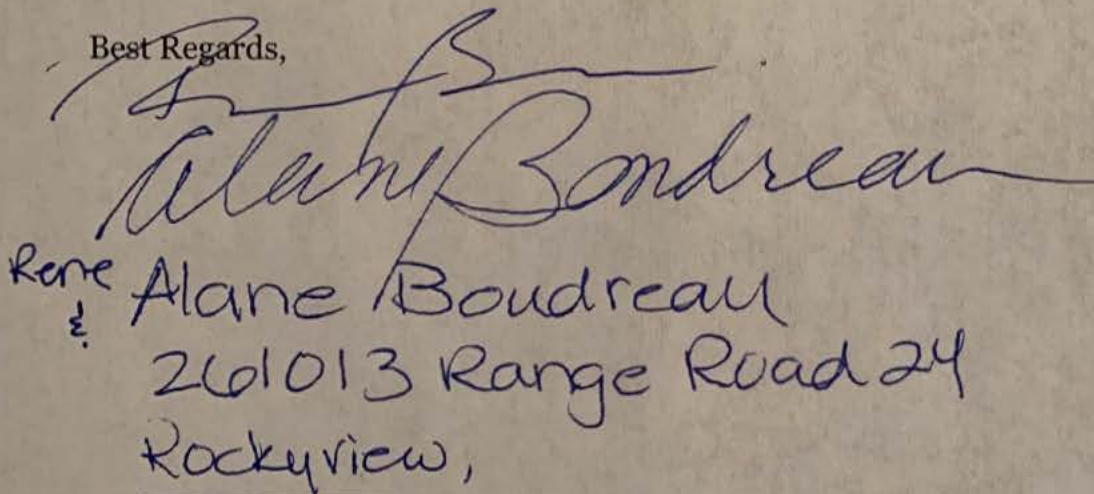 Best Regards,
Alane Boudreau
Rene & Alane Boudreau
261013 Range Road 24
Rockyview,